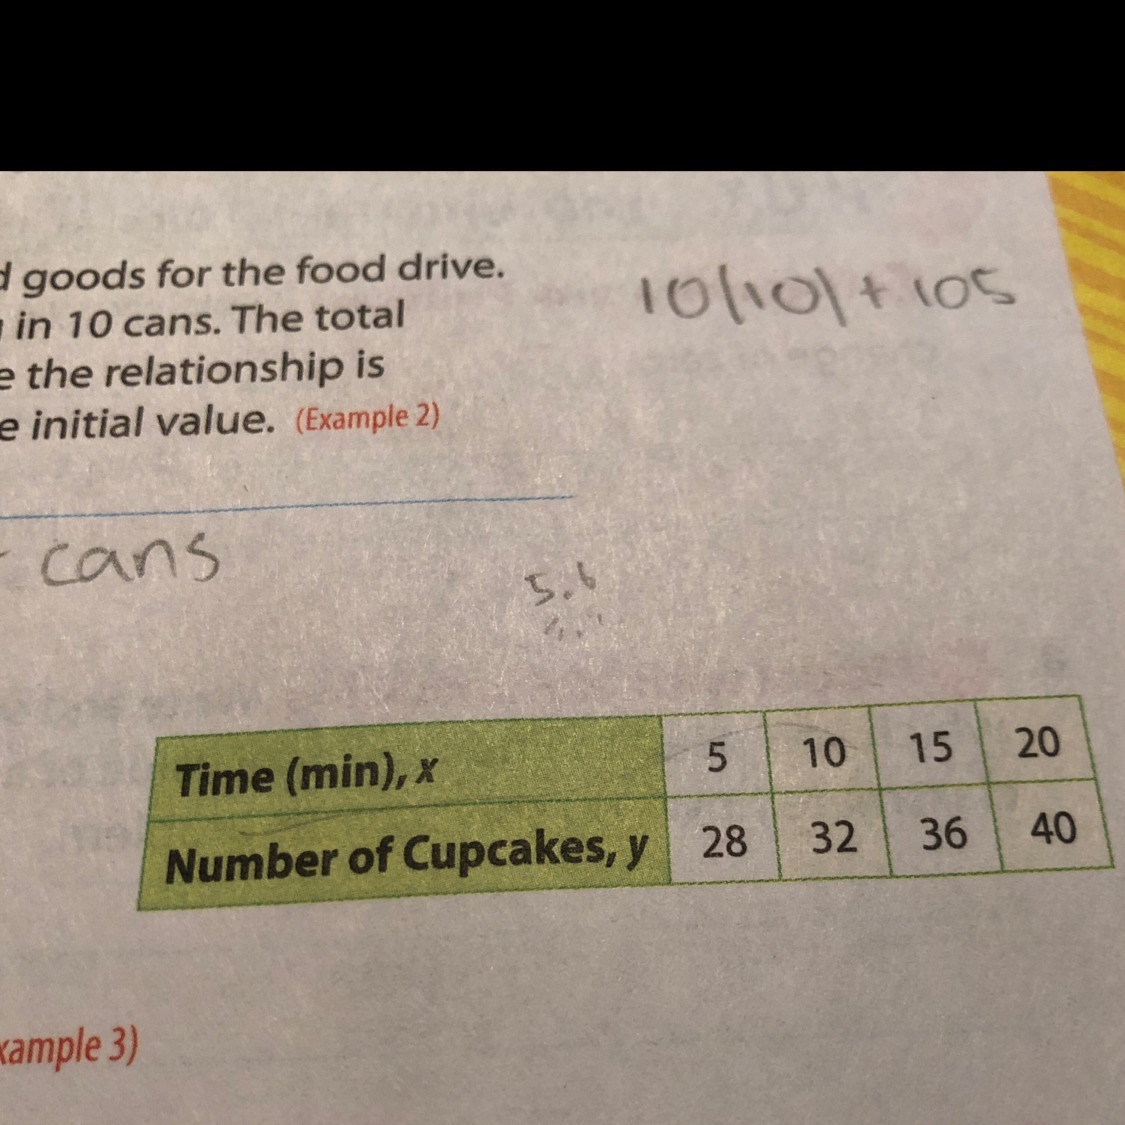 goods for the food drive.
in 10 cans. The total
the relationship is
initial value. (Example 2)
10(10)+105
cans
5.6
Time (min), x 5 10 15 20
Number of Cupcakes, y 28 32 36 40
xample 3)